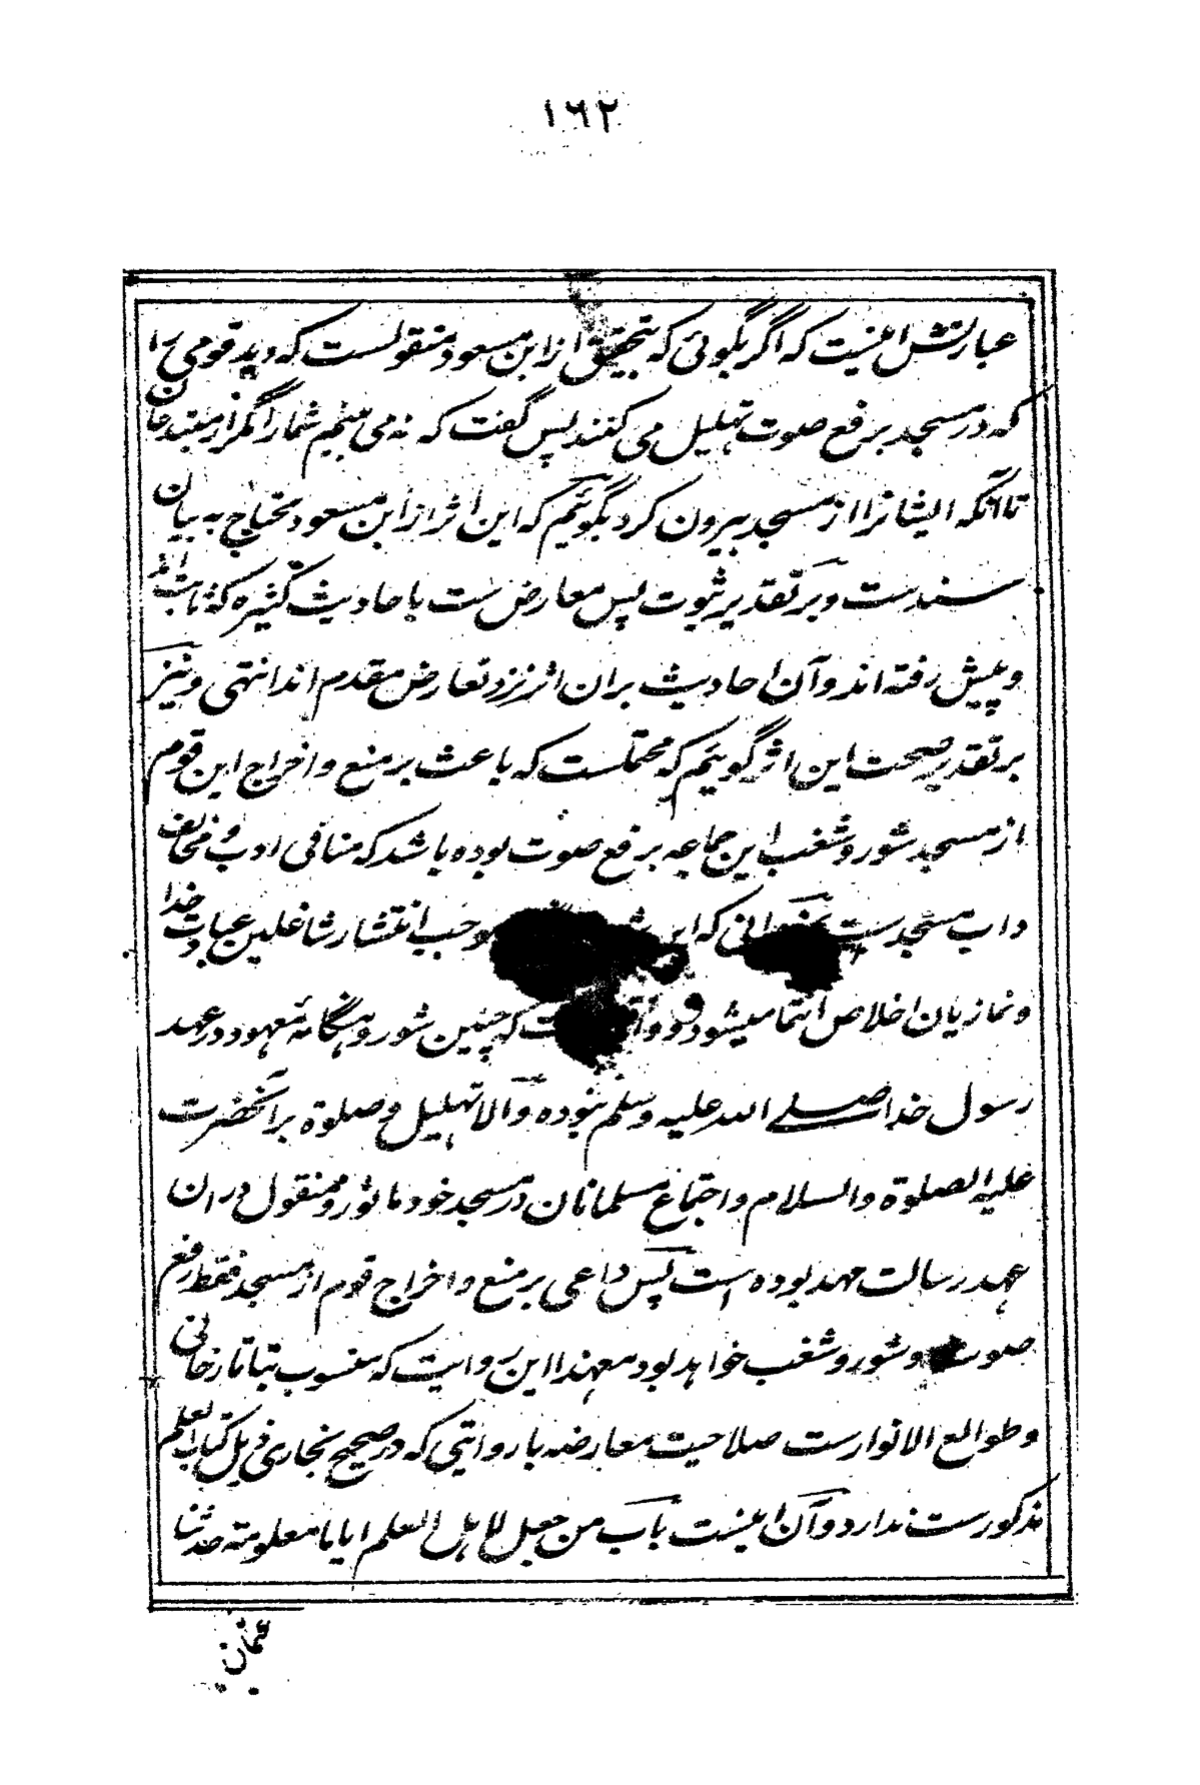 ۱۶۲
عبارتش اینست که اگر بگوئی که بتحقیق از ابن مسعود منقولست که دید قومی را
که در مسجد برفع صوت تهلیل می کنند پس گفت که نه می بینم شما را مگر از مبتدعان
تا آنکه ایشانرا از مسجد بیرون کرد بگوئیم که این اثر از ابن مسعود محتاج به بیان
سندست و بر تقدیر ثبوت پس معارض ست با حادیث کثیره که ثابت اند
و پیش رفته اند و آن احادیث بران اثر نزد تعارض مقدم اند انتهی و نیز
بر تقدیر صحت این اثر گوئیم که محتملست که باعث بر منع و اخراج این قوم
از مسجد شور و شغب این جماعه برفع صوت بوده باشد که منافی ادب و مخالف
داب مسجد ست که این موجب انتشار شاغلین عبادت خدا
و نمازیان اخلاص انتما میشود و که چنین شور و هنگامه معهود در عهد
رسول خدا صلی الله علیه و سلم نبوده و الا تهلیل و صلوة بر آنحضرت
علیه الصلوة والسلام و اجتماع مسلمانان در مسجد خود ماثور و منقول در ان
عهد رسالت مهد بوده است پس داعی بر منع و اخراج قوم از مسجد فقط رفع
صوت و شور و شغب خواهد بود معهذا این روایت که منسوب بتاتارخانی
و طوالع الانوار ست صلاحیت معارضه با روایتی که در صحیح بخاری ذیل کتاب العلم
مذکور ست ندارد و آن اینست باب من جعل لاهل العلم ایاما معلومة حدثنا
عثمان بن